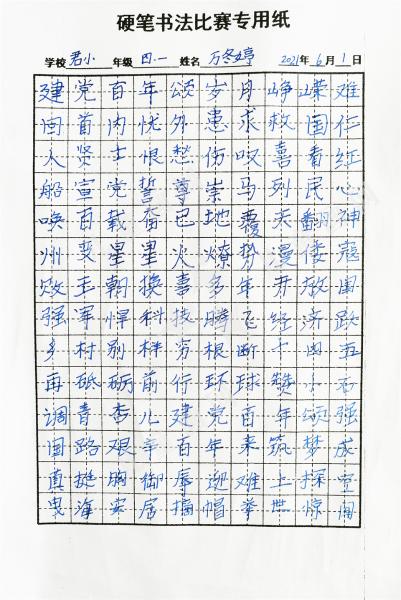 硬笔书法比赛专用纸
学校 君小 年级 四.一 姓名 万冬婷 2021年6月1日
建党百年颂岁月峥嵘难
回首内忧外患求救国仁
人贤士恨愁伤叹喜看红
船宣党誓尊崇马列民心
唤百载奋已地覆天翻神
州变星星火燎势漫倭寇
败王朝换喜多年开放国
强军悍科技腾飞经济跃
乡村别样穷根断十四五
再砥砺前行环球赞小石
调青杏儿建党百年颂强
国路艰辛百年来筑梦成
真挺胸御辱迎难上探空
海实居摘帽举世惊闻